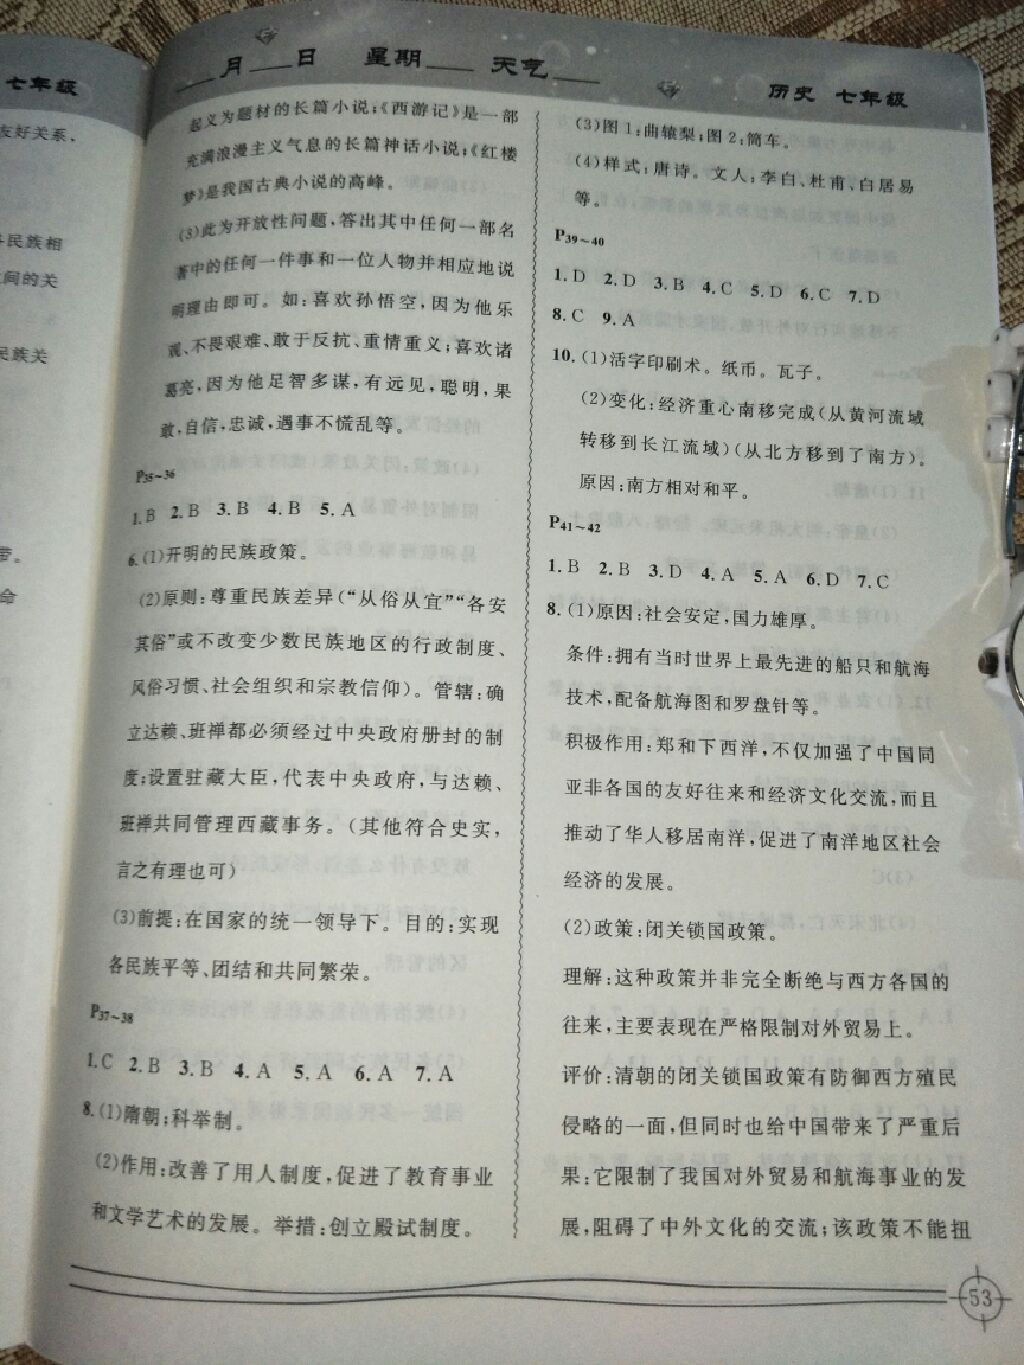 七年级
友好关系、
民族相
间的关
民族关
带。
命
月 日 星期 天气
历史 七年级
起义为题材的长篇小说;《西游记》是一部
充满浪漫主义气息的长篇神话小说;《红楼
梦》是我国古典小说的高峰。
(3)此为开放性问题,答出其中任何一部名
著中的任何一件事和一位人物并相应地说
明理由即可。如:喜欢孙悟空,因为他乐
观、不畏艰难、敢于反抗、重情重义;喜欢诸
葛亮,因为他足智多谋,有远见,聪明,果
敢,自信,忠诚,遇事不慌乱等。
P35~36
1.B 2.B 3.B 4.B 5.A
6.(1)开明的民族政策。
(2)原则:尊重民族差异(“从俗从宜”“各安
其俗”或不改变少数民族地区的行政制度、
风俗习惯、社会组织和宗教信仰)。管辖:确
立达赖、班禅都必须经过中央政府册封的制
度;设置驻藏大臣,代表中央政府,与达赖、
班禅共同管理西藏事务。(其他符合史实,
言之有理也可)
(3)前提:在国家的统一领导下。目的:实现
各民族平等、团结和共同繁荣。
P37~38
1.C 2.B 3.B 4.A 5.A 6.A 7.A
8.(1)隋朝;科举制。
(2)作用:改善了用人制度,促进了教育事业
和文学艺术的发展。举措:创立殿试制度。
(3)图1:曲辕犁;图2:筒车。
(4)样式:唐诗。文人:李白、杜甫、白居易
等。
P39~40
1.D 2.D 3.B 4.C 5.D 6.C 7.D
8.C 9.A
10.(1)活字印刷术。纸币。瓦子。
(2)变化:经济重心南移完成(从黄河流域
转移到长江流域)(从北方移到了南方)。
原因:南方相对和平。
P41~42
1.B 2.B 3.D 4.A 5.A 6.D 7.C
8.(1)原因:社会安定,国力雄厚。
条件:拥有当时世界上最先进的船只和航海
技术,配备航海图和罗盘针等。
积极作用:郑和下西洋,不仅加强了中国同
亚非各国的友好往来和经济文化交流,而且
推动了华人移居南洋,促进了南洋地区社会
经济的发展。
(2)政策:闭关锁国政策。
理解:这种政策并非完全断绝与西方各国的
往来,主要表现在严格限制对外贸易上。
评价:清朝的闭关锁国政策有防御西方殖民
侵略的一面,但同时也给中国带来了严重后
果:它限制了我国对外贸易和航海事业的发
展,阻碍了中外文化的交流;该政策不能扭
53